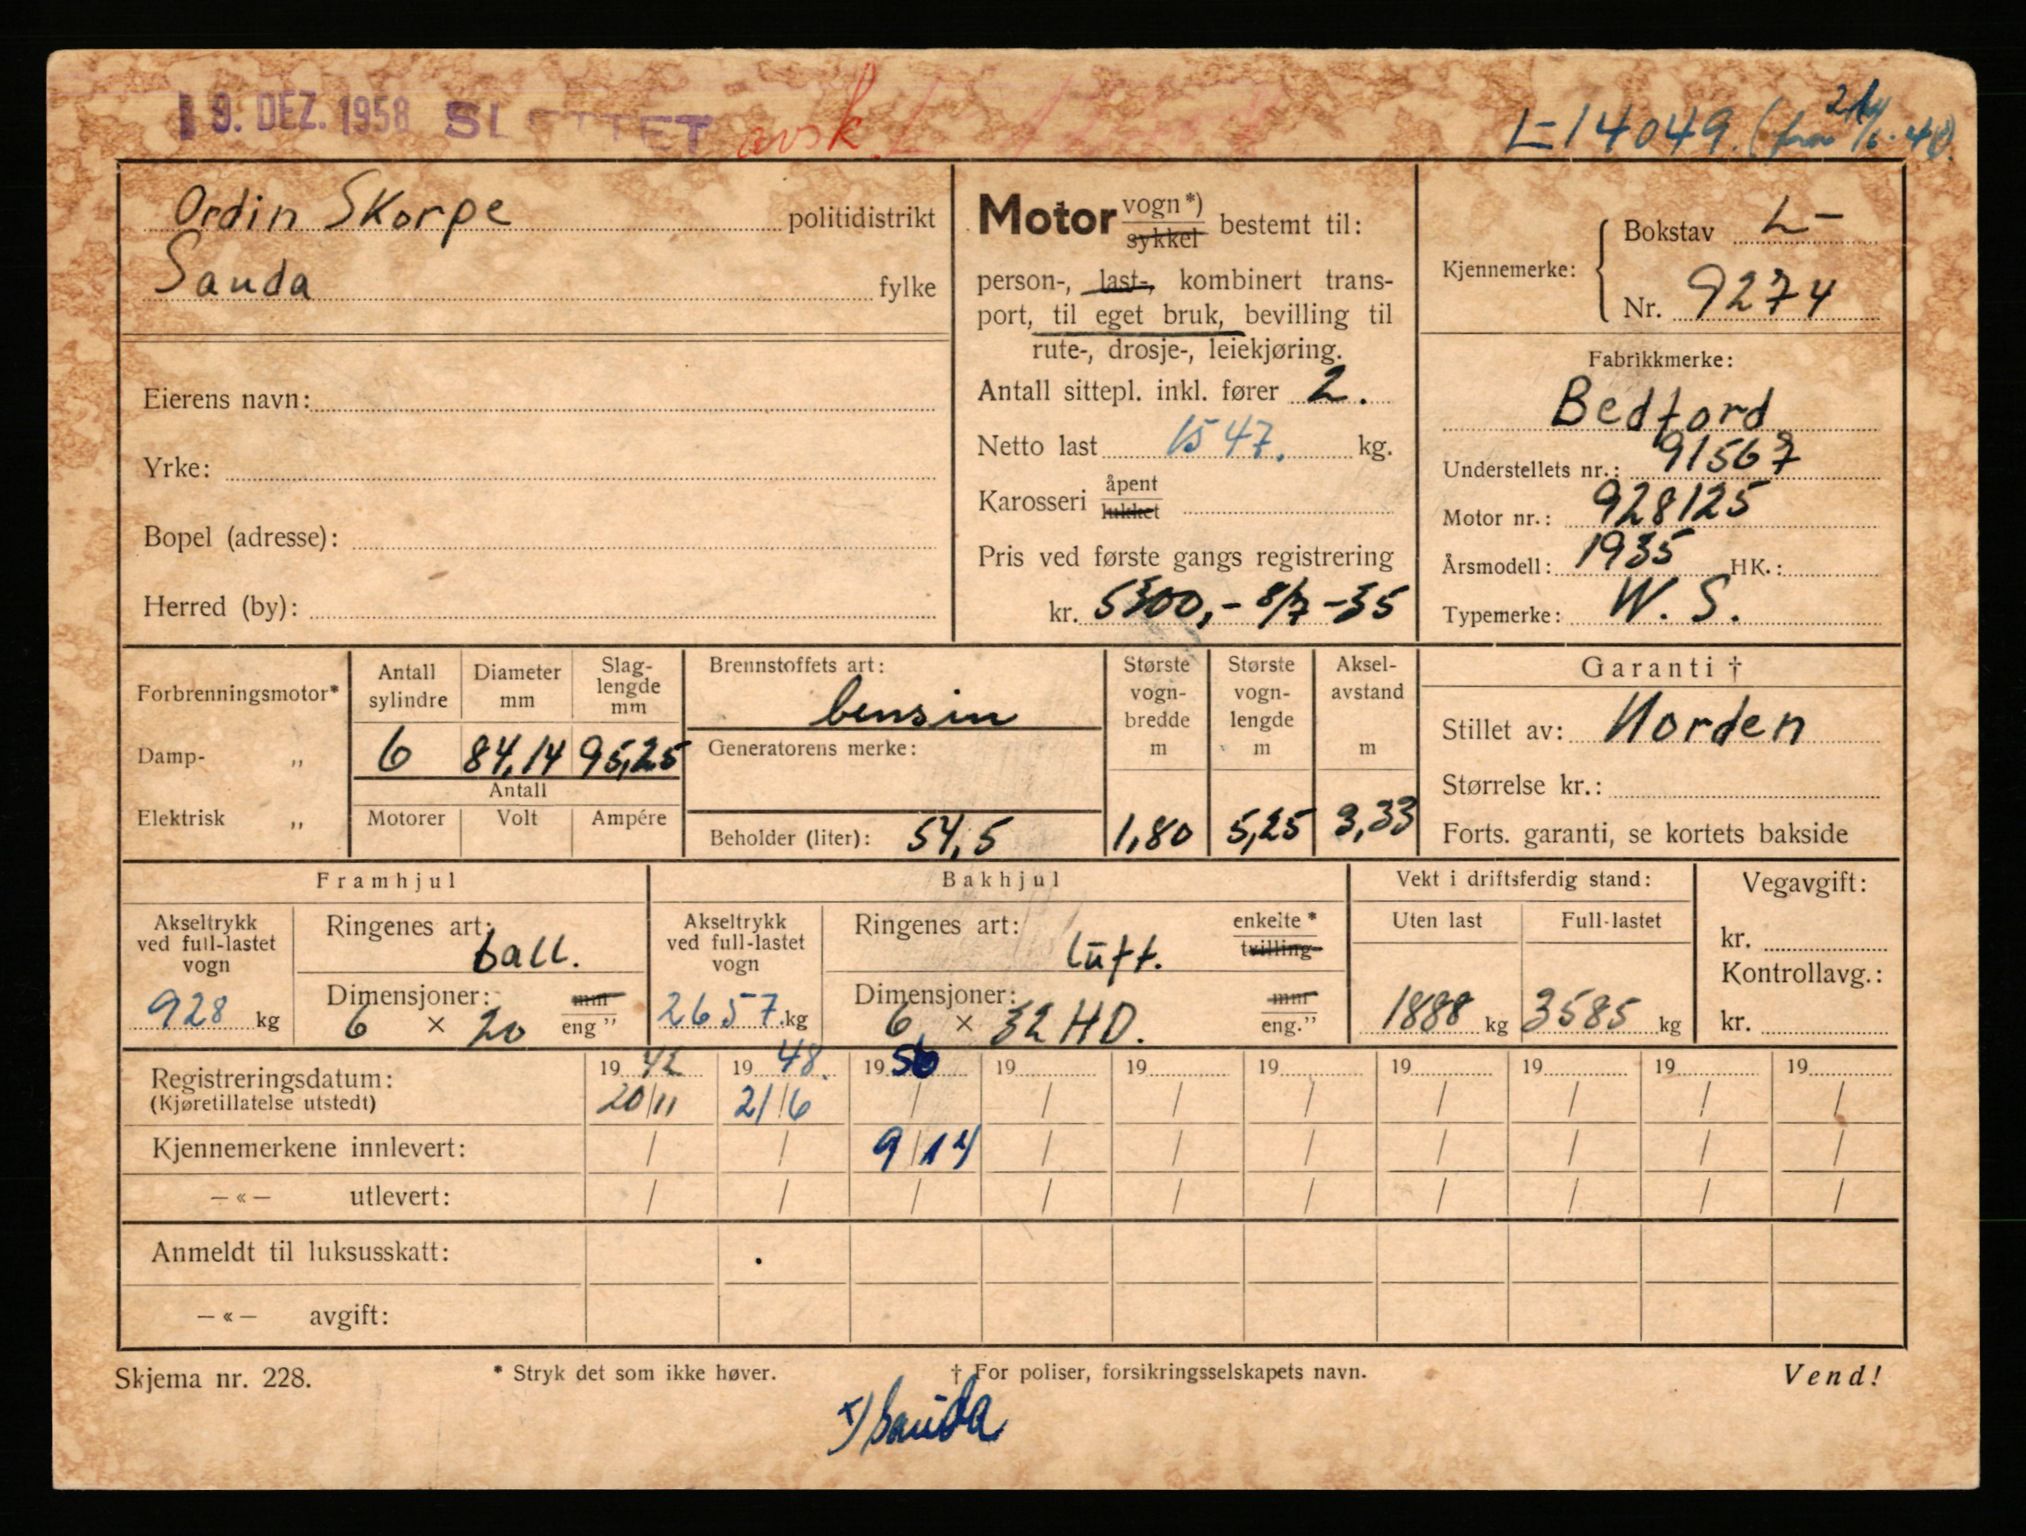 9. DEZ. 1958 SLETTET avsk.
L-14049. (fra 21/6-48).
Ordin Skorpe politidistrikt
Sauda fylke
Eierens navn:
Yrke:
Bopel (adresse):
Herred (by):
Motor vogn*) sykkel bestemt til:
person-, last-, kombinert trans-
port, til eget bruk, bevilling til
rute-, drosje-, leiekjøring.
Antall sittepl. inkl. fører 2.
Netto last 1547. kg.
Karosseri åpent lukket
Pris ved første gangs registrering
kr. 5300,- 8/7-35
Kjennemerke: Bokstav L-
Nr. 9274
Fabrikkmerke:
Bedford
Understellets nr.: 91567
Motor nr.: 928125
Årsmodell: 1935 HK.:
Typemerke: W. S.
Forbrenningsmotor*
Damp- „
Elektrisk „
Antall sylindre
6
Diameter mm
84,14
Slag-lengde mm
95,25
Antall
Motorer Volt Ampére
Brennstoffets art:
bensin
Generatorens merke:
Beholder (liter): 54,5
Største vogn-bredde m
1,80
Største vogn-lengde m
5,25
Aksel-avstand m
3,33
Garanti †
Stillet av: Norden
Størrelse kr.:
Forts. garanti, se kortets bakside
Framhjul
Akseltrykk ved full-lastet vogn
928 kg
Ringenes art: ball.
Dimensjoner: 6 × 20 mm eng"
Bakhjul
Akseltrykk ved full-lastet vogn
2657 kg
Ringenes art: luft. enkelte* tvilling
Dimensjoner: 6 × 32 HD. mm eng."
Vekt i driftsferdig stand:
Uten last
1888 kg
Full-lastet
3585 kg
Vegavgift:
kr.
Kontrollavg.:
kr.
Registreringsdatum: 19 42 19 48. 19 56 19 19 19 19 19 19 19
(Kjøretillatelse utstedt) 20/11 21/6 / / / / / / / /
Kjennemerkene innlevert: / / 9/14 / / / / / / /
—«— utlevert: / / / / / / / / / /
Anmeldt til luksusskatt:
—«— avgift:
Skjema nr. 228.
* Stryk det som ikke høver.
† For poliser, forsikringsselskapets navn.
Vend!
x) Sauda